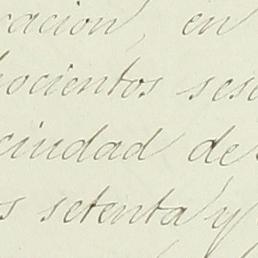 racion, en
hocientos sese
ciudad de
s setenta y